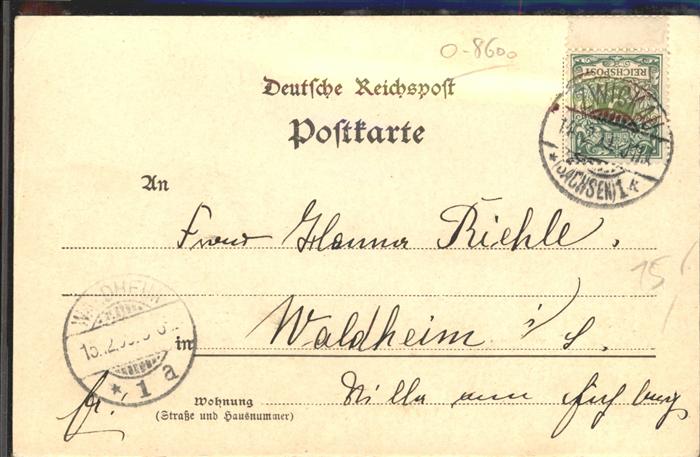 0-8600
REICHSPOST
Deutsche Reichspost
Postkarte
ZWICKAU
(SACHSEN) 1 k
An
Frau Hanna Riehle.
15/
WALDHEIM
* 1 a
in Waldheim i/S.
fr.
Wohnung
(Straße und Hausnummer)
Villa am